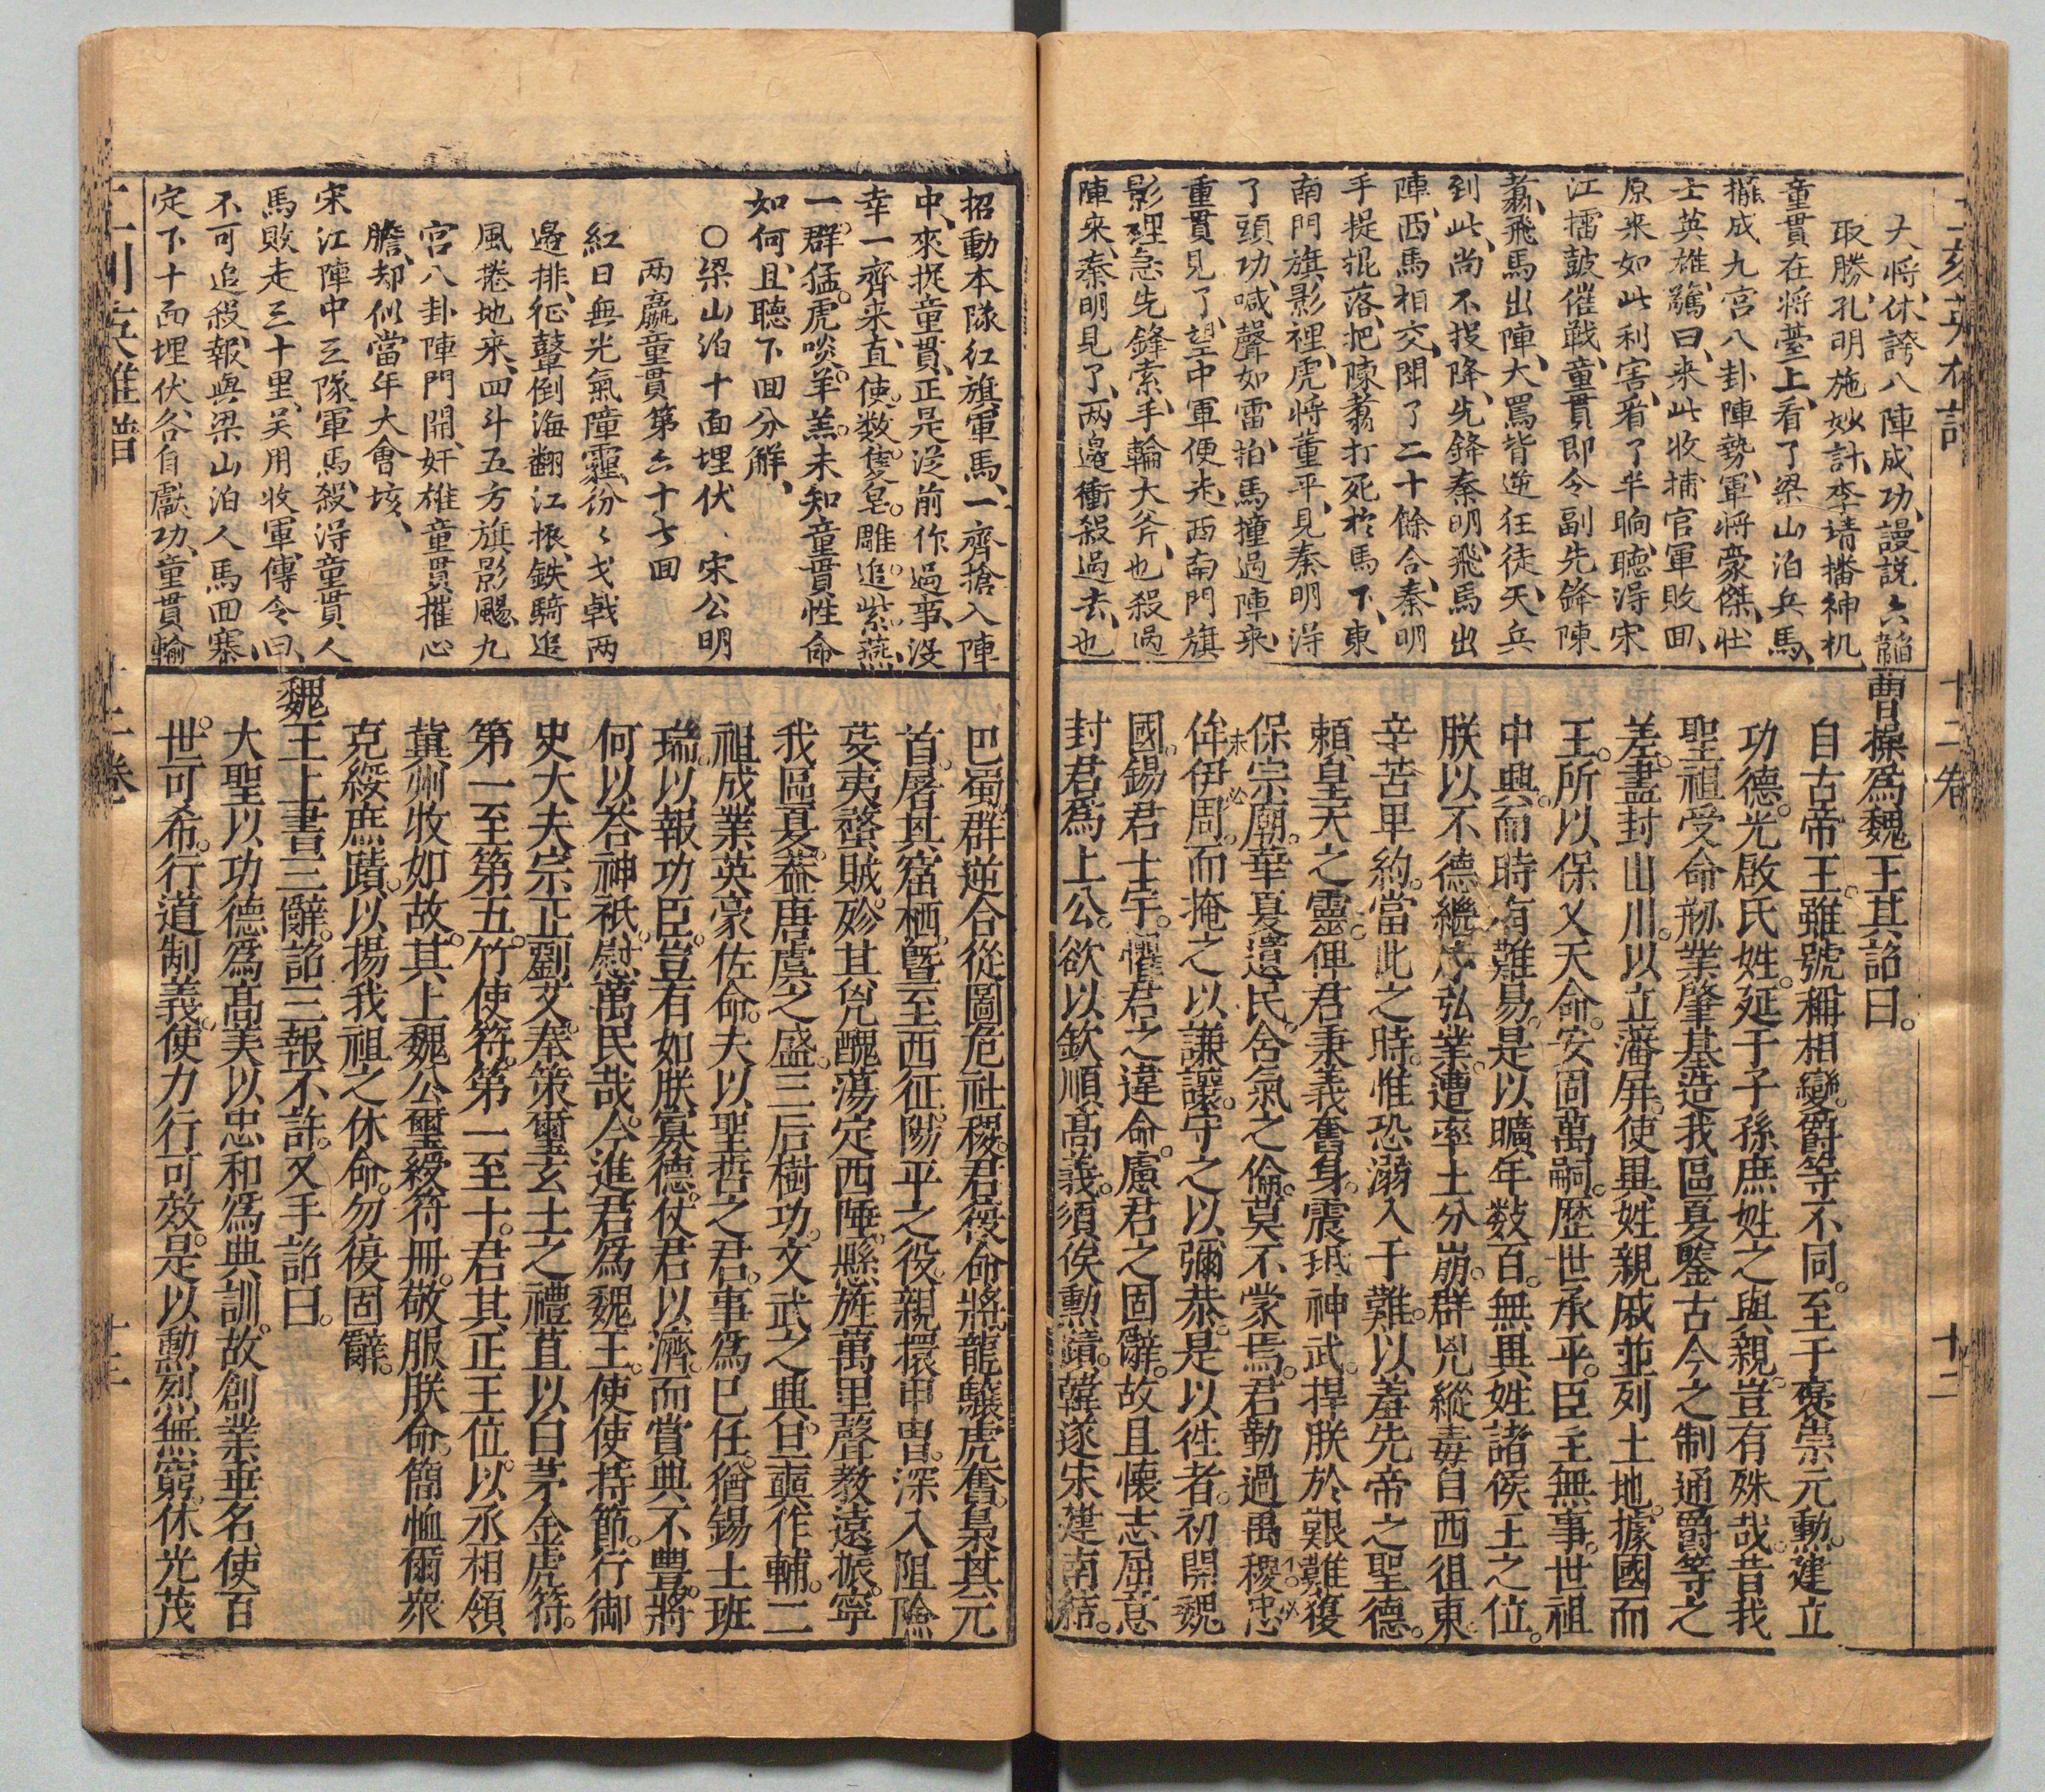 二刻英雄譜
十二卷
十二
大將、休誇八陣成功、謾説六韜
取勝、孔明施妙計、李靖播神机、
童貫在將臺上、看了梁山泊兵馬、
擺成九宮八卦陣勢、軍將豪傑、壮
士英雄、驚曰、来此收捕官軍敗回、
原来如此利害、看了半晌、聴淂宋
江擂鼓催戦、童貫即令副先鋒陳
翥、飛馬出陣、大罵背逆狂徒、天兵
到此、尚不投降、先鋒秦明、飛馬出
陣、両馬相交、闘了二十餘合、秦明
手提棍落、把陳翥打死於馬下、東
南門旗影裡、虎将董平、見秦明淂
了頭功、喊聲如雷、拍馬撞過陣来、
童貫見了、望中軍便走、西南門旗
影裡急先鋒索、手輪大斧、也殺過
陣来、秦明見了、両邉衝殺過去、也
曹操爲魏王其詔曰。
自古帝王。雖號稱相變。爵等不同。至于褒崇元勳。建立
功德。光啟氏姓。延于子孫。庶姓之與親。豈有殊哉。昔我
聖祖受命。剏業肇基。造我區夏。鑒古今之制。通爵等之
差。盡封山川。以立藩屏。使異姓親戚。並列土地。據國而
王。所以保乂天命。安固萬嗣。歷世承平。臣主無事。世祖
中興。而時有難易。是以曠年數百。無異姓諸侯王之位。
朕以不德。繼序弘業。遭率土分崩。群兇縱毒。自西徂東。
辛苦卑約。當此之時。惟恐溺入于難。以羞先帝之聖德。
頼皇天之靈。俾君秉義奮身。震珽神武。捍朕於艱難。復
保宗廟。華夏遺民。含氣之倫。莫不蒙焉。君勤過禹稷。忠
侔伊周。而掩之以謙讓。守之以彌恭。是以徃者。初開魏
國。錫君土宇。懼君之違命。慮君之固辭。故且懷志屈意
封君爲上公。欲以欽順高義。須俟勲蹟。韓遂宋建。南結。
招動本隊紅旗軍馬、一齊搶入陣
中、來捉童貫、正是従前作過事、没
幸一齊来、直使。数隻。皂雕追紫燕、
一群猛。虎啖羊羔、未知童貫性命
如何、且聴下回分解、
○梁山泊十面埋伏、宋公明
両羸童貫第六十七回
紅日無光氣障霾、紛〻戈戟両
邉排、征鼙倒海翻江振、鉄騎追
風捲地来、四斗五方旗影颺、九
宮八卦陣門開、奸雄童貫摧心
膽、却似當年大會垓、
宋江陣中三隊軍馬、殺淂童貫人
馬敗走三十里、吴用收軍、傳令曰、
不可追殺、報與梁山泊人馬回寨、
定下十面埋伏、各自獻功、童貫輸
巴蜀。群逆合從。圖危社稷。君復命將。龍驤虎奮。梟其元
首。屠其窟栖。曁至西征。陽平之役。親擐甲冑。深入阻險
芟夷蝥賊。殄其兇醜。蕩定西陲。懸旌萬里。聲教遠振。寧
我區夏。葢唐虞之盛。三后樹功。文武之典。旦奭作輔。二
祖成業。英豪佐命。夫以聖哲之君。事爲巳任。猶錫土班
瑞。以報功臣。豈有如朕寡德。仗君以濟。而賞典不豐。將
何以荅神祇。慰萬民哉。今進君爲魏王。使使持節。行御
史大夫宗正劉艾。奉策璽玄土之禮。苴以白茅。金虎符。
第一至第五。竹使符。第一至十。君其正王位。以丞相領
冀州收如故。其上魏公璽綬符冊。敬服朕命。簡恤爾衆
克綏庶蹟。以揚我祖之休命。勿復固辭。
魏王上書三辭。詔三報不許。又手詔曰。
大聖以功德爲高美。以忠和爲典訓。故創業垂名。使百
世可希。行道制義。使力行可效。是以勲烈無窮。休光茂
二刻英雄譜
十二卷